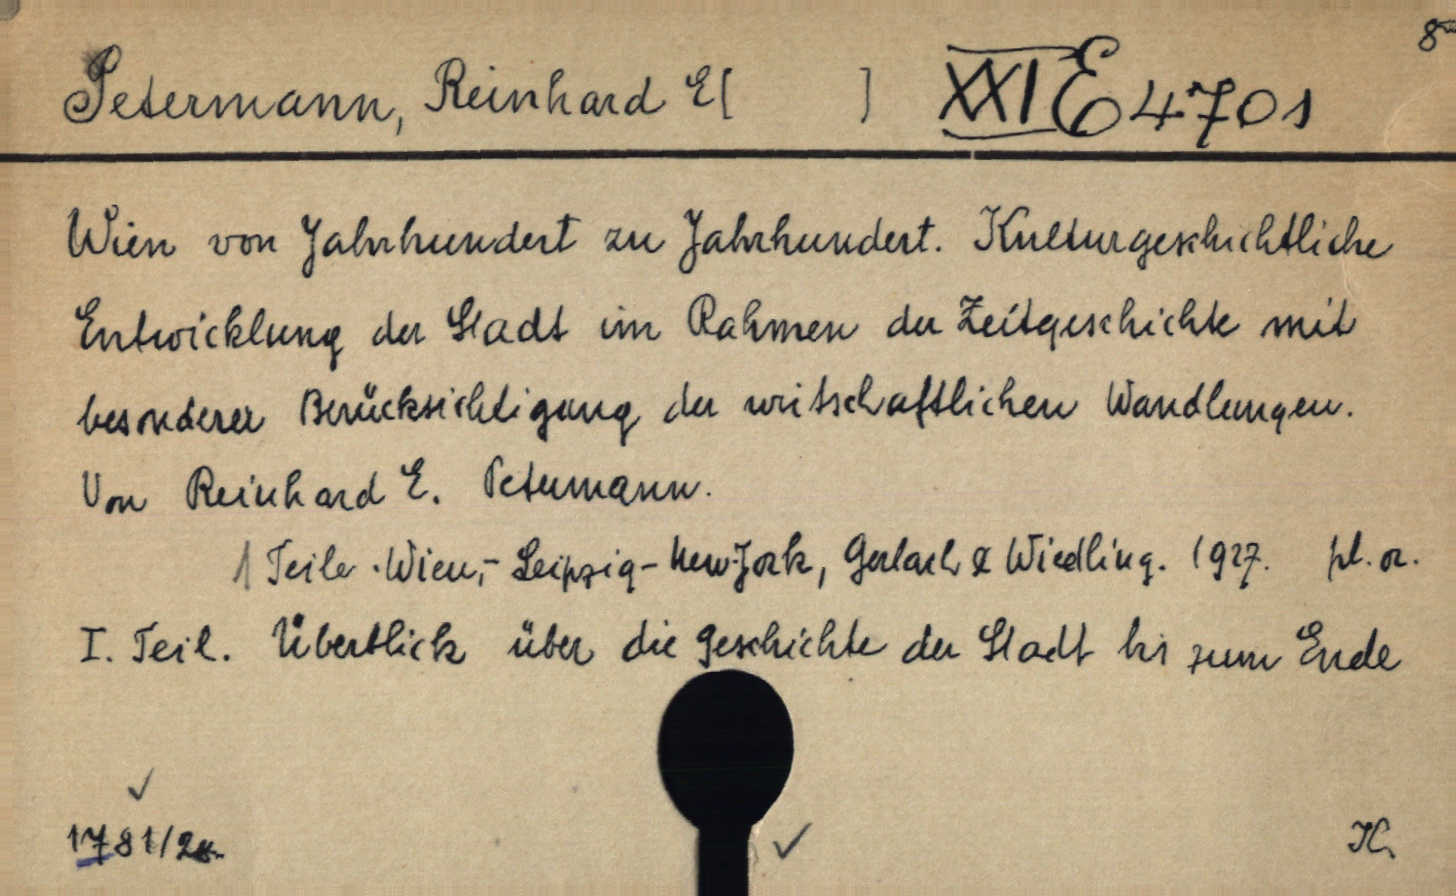 Petermann, Reinhard E[ ] XXI E 4701
Wien von Jahrhundert zu Jahrhundert. Kulturgeschichtliche
Entwicklung der Stadt im Rahmen der Zeitgeschichte mit
besonderer Berücksichtigung der wirtschaftlichen Wandlungen.
Von Reinhard E. Petermann.
1 Teile. Wien,- Leipzig- New-York, Gerlach & Wiedling. 1927. pl. 8r.
I. Teil. Überblick über die Geschichte der Stadt bis zum Ende
1781/28.
K.